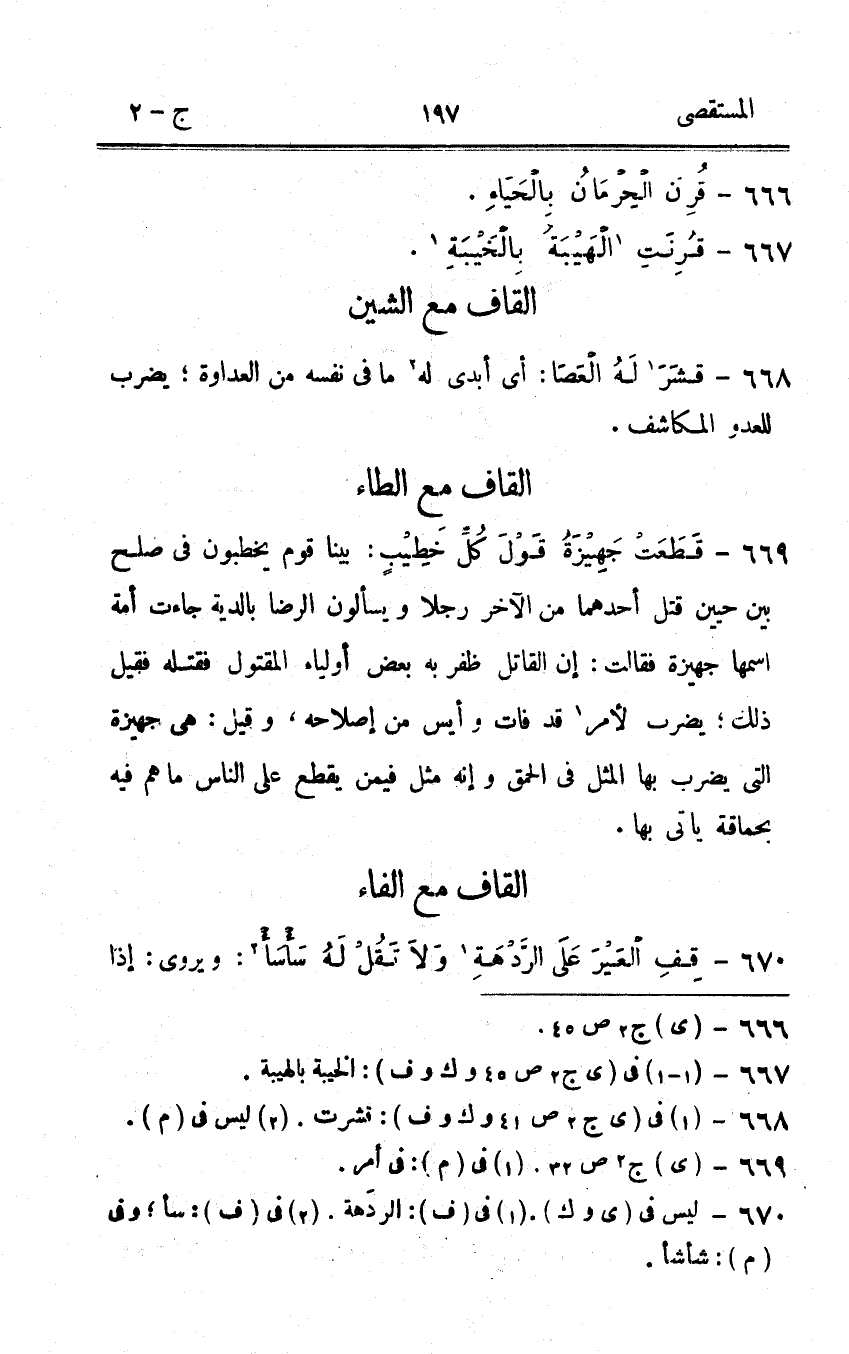 المستقصى ١٩٧ ج – ٢
٦٦٦ – قُرِنَ الْحِرْمَانُ بِالْحَيَاءِ .
٦٦٧ – قُرِنَتِ ١الْهَيْبَةُ بِالْخَيْبَةِ١ .
القاف مع الشين
٦٦٨ – قَشَرَ١ لَهُ الْعَصَا : أى أبدى له٢ ما فى نفسه من العداوة ؛ يضرب
للعدو المكاشف .
القاف مع الطاء
٦٦٩ – قَطَعَتْ جَهِيْزَةُ قَوْلَ كُلِّ خَطِيْبٍ : بينا قوم يخطبون فى صلح
بين حيين قتل أحدهما من الآخر رجلا و يسألون الرضا بالدية جاءت أمة
اسمها جهيزة فقالت : إن القاتل ظفر به بعض أولياء المقتول فقتله فقيل
ذلك ؛ يضرب لأمر١ قد فات و أيس من إصلاحه ، و قيل : هى جهيزة
التى يضرب بها المثل فى الحمق و إنه مثل فيمن يقطع على الناس ما هم فيه
بحماقة يأتى بها .
القاف مع الفاء
٦٧٠ – قِفِ الْعَيْرَ عَلَى الرَّدْهَةِ١ وَلاَ تَقُلْ لَهُ سَأْسَأْ٢ : و يروى : إذا
٦٦٦ – (ى) ج٢ ص ٤٥ .
٦٦٧ – (١-١) فى (ى ج٢ ص ٤٥ و ك و ف) : الخيبة بالهيبة .
٦٦٨ – (١) فى (ى ج ٢ ص ٤١ و ك و ف) : قشرت . (٢) ليس فى (م) .
٦٦٩ – (ى) ج٢ ص ٣٢ . (١) فى (م) : فى أمر .
٦٧٠ – ليس فى (ى و ك) . (١) فى (ف) : الردَهة . (٢) فى (ف) : سأ ؛ و فى
(م) : شأشأ .